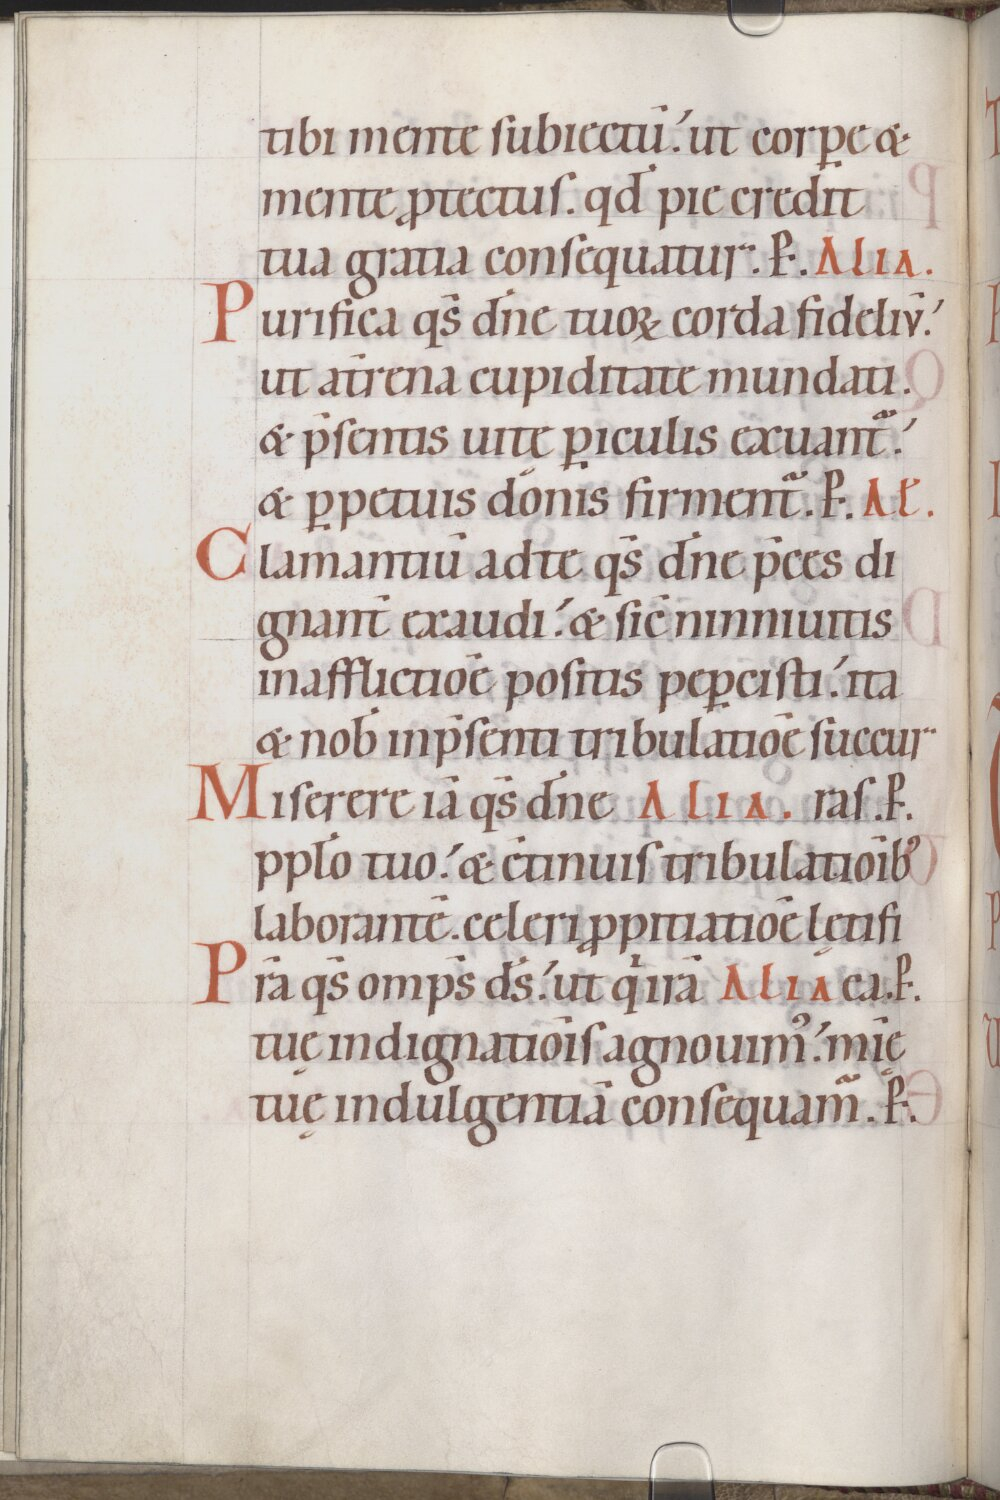 tibi mente subiectū. ut corꝑe &
mente ꝓtectus. qd̄ pie credit
tua gratia consequatur. P. ALIA.
Purifica qs̄ dn̄e tuoꝝ corda fideliū.
ut atr̄ena cupiditate mundati.
& p̄sentis uitę ꝑiculis exuant̃.
& ꝑpetuis donis firment̃. P. Al.
Clamantiū adte qs̄ dn̄e p̄ces di
gnant̄ exaudi. & sic̄ ninniuitis
inafflictiōe positis peꝑcisti. ita
& nob̄ inp̄senti tribulatiōe succur
Miserere iā qs̄ dn̄e ALIA. ras. P.
pplō tuo. & c̄tinuis tribulatioīb᾽
laborantē. celeri ꝓpitiatiōe lętifi
Prā qs̄ omps̄ ds̄. ut qͥ irā ALIA ca. P.
tuę indignatiōis agnouim᾽. mīę
tuę indulgentiā consequam̃. P.